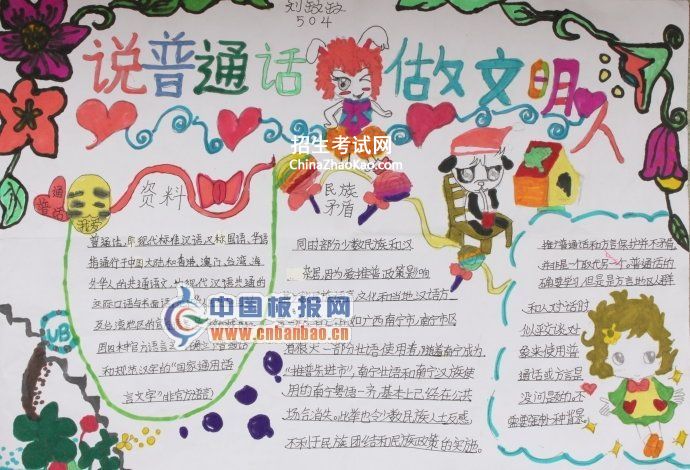 刘敏敏
504
说普通话 做文明人
招生考试网
ChinaZhaoKao.com
普通话
我爱
资料
普通话,即现代标准汉语,又称国语、华语
指通行于中国大陆和香港、澳门、台湾、海
外华人的共通语文,
现代汉语共通的
交际口语与书面语
及台湾地区的官
和规范汉字的“国家通用语
言文字”
中国板报网
www.cnbanbao.cn
民族
矛盾
同时部分少数民族和汉
推普政策影响
文化和当地汉语方
如广西南宁市,南宁市区
有很大一部分壮语使用者,随着南宁成为
“推普先进市”,南宁壮语和南宁汉族使
用的南宁粤语一齐,基本上已经在公共
场合消失。此举也令少数民族人士反感,
不利于民族团结和民族政策的实施。
推广普通话和方言保护并不矛盾,
并非是一个取代另一个。普通话的
确要学习,但是是方言地区人群
和人对话时
似乎谈话对
象来使用普
通话或方言是
没问题的,不
需要强扑一种背景。
UB